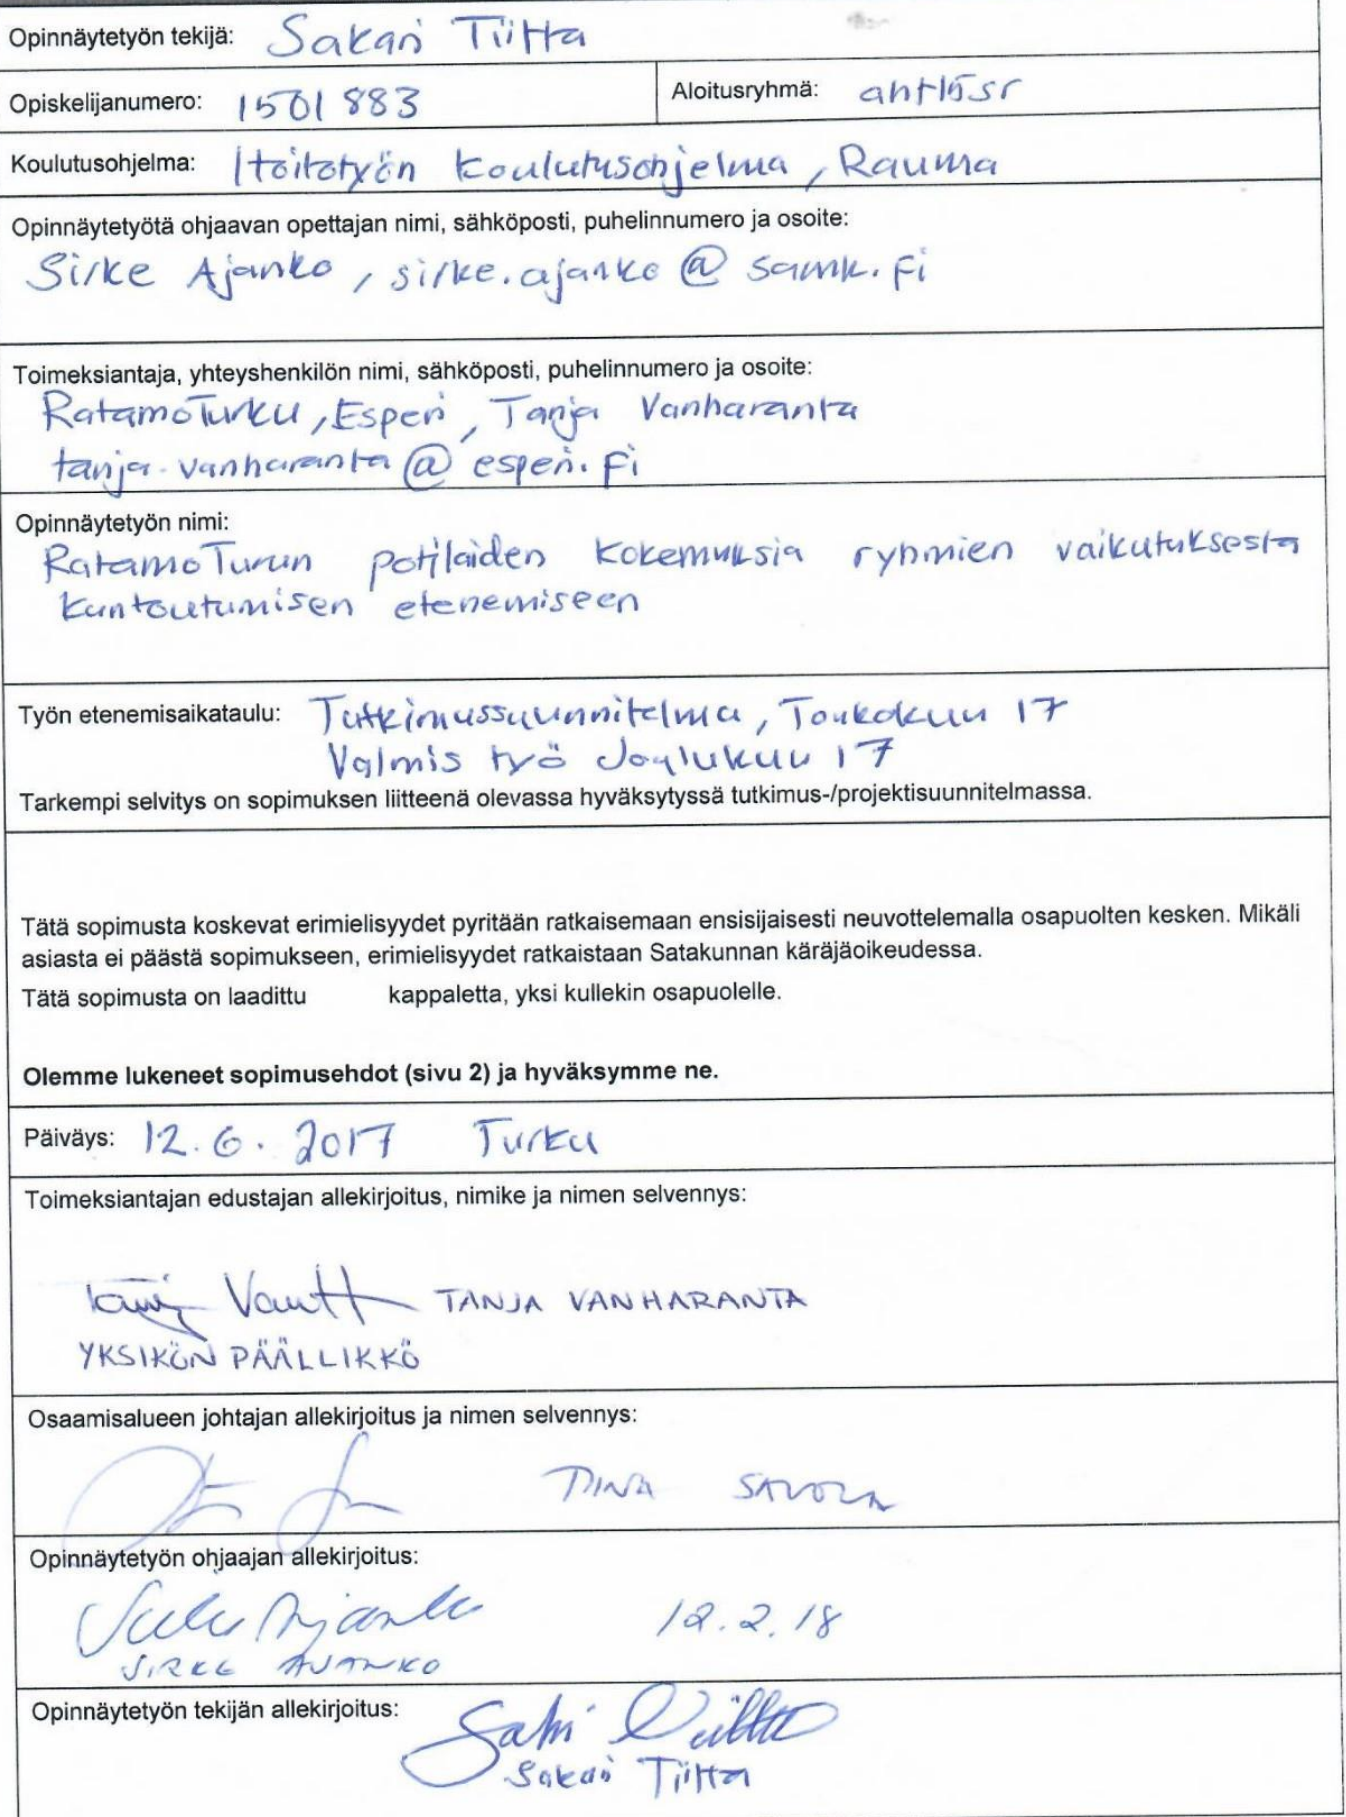 Opinnäytetyön tekijä: Sakari Tiitta
Opiskelijanumero: 1501883 Aloitusryhmä: aht15sr
Koulutusohjelma: Hoitotyön koulutusohjelma, Rauma
Opinnäytetyötä ohjaavan opettajan nimi, sähköposti, puhelinnumero ja osoite:
Sirke Ajanko, sirke.ajanko@samk.fi
Toimeksiantaja, yhteyshenkilön nimi, sähköposti, puhelinnumero ja osoite:
RatamoTurku, Esperi, Tanja Vanharanta
tanja.vanharanta@esperi.fi
Opinnäytetyön nimi:
RatamoTurun potilaiden kokemuksia ryhmien vaikutuksesta
kuntoutumisen etenemiseen
Työn etenemisaikataulu: Tutkimussuunnitelma, Toukokuu 17
Valmis työ Joulukuu 17
Tarkempi selvitys on sopimuksen liitteenä olevassa hyväksytyssä tutkimus-/projektisuunnitelmassa.
Tätä sopimusta koskevat erimielisyydet pyritään ratkaisemaan ensisijaisesti neuvottelemalla osapuolten kesken. Mikäli
asiasta ei päästä sopimukseen, erimielisyydet ratkaistaan Satakunnan käräjäoikeudessa.
Tätä sopimusta on laadittu kappaletta, yksi kullekin osapuolelle.
Olemme lukeneet sopimusehdot (sivu 2) ja hyväksymme ne.
Päiväys: 12.6.2017 Turku
Toimeksiantajan edustajan allekirjoitus, nimike ja nimen selvennys:
TANJA VANHARANTA
YKSIKÖN PÄÄLLIKKÖ
Osaamisalueen johtajan allekirjoitus ja nimen selvennys:
TIINA SAVOLA
Opinnäytetyön ohjaajan allekirjoitus:
Sirke Ajanko 12.2.18
SIRKE AJANKO
Opinnäytetyön tekijän allekirjoitus:
Sakari Tiitta